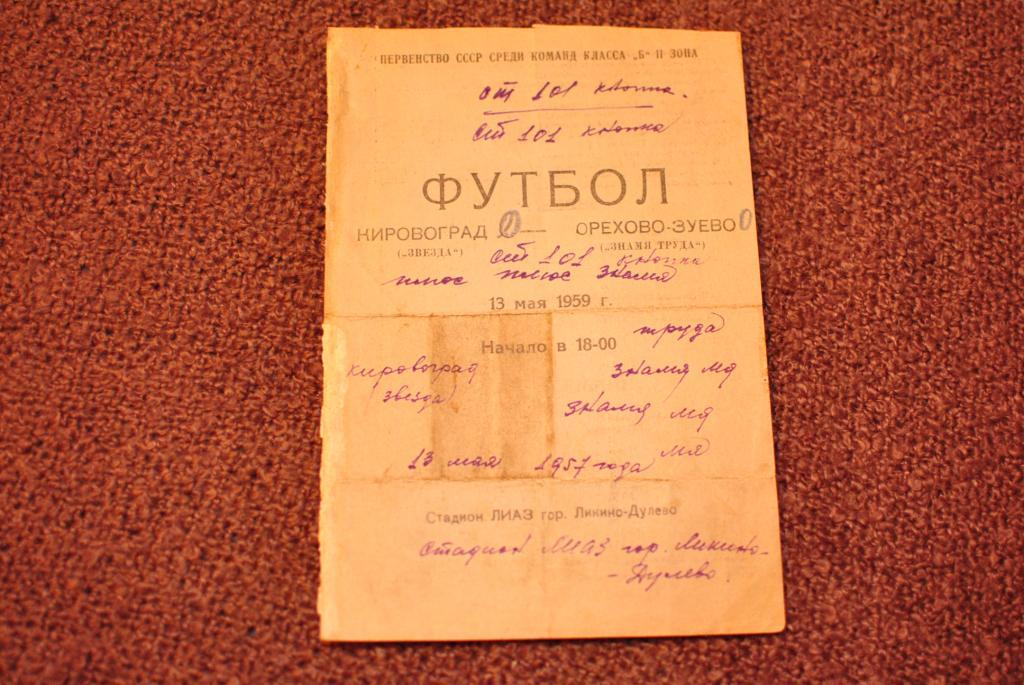 ПЕРВЕНСТВО СССР СРЕДИ КОМАНД КЛАССА „Б" II ЗОНА
от 101 кнопка.
ст 101 кнопка
ФУТБОЛ
КИРОВОГРАД 0 — ОРЕХОВО-ЗУЕВО 0
(„ЗВЕЗДА") („ЗНАМЯ ТРУДА")
ст 101 кнопка
плюс плюс знамя
13 мая 1959 г.
труда
Начало в 18-00
кировоград знамя мя
(звезда) знамя мя
мя
13 мая 1957 года
Стадион ЛИАЗ гор. Ликино-Дулево
стадион ЛИАЗ гор. Ликино-
- Дулево.